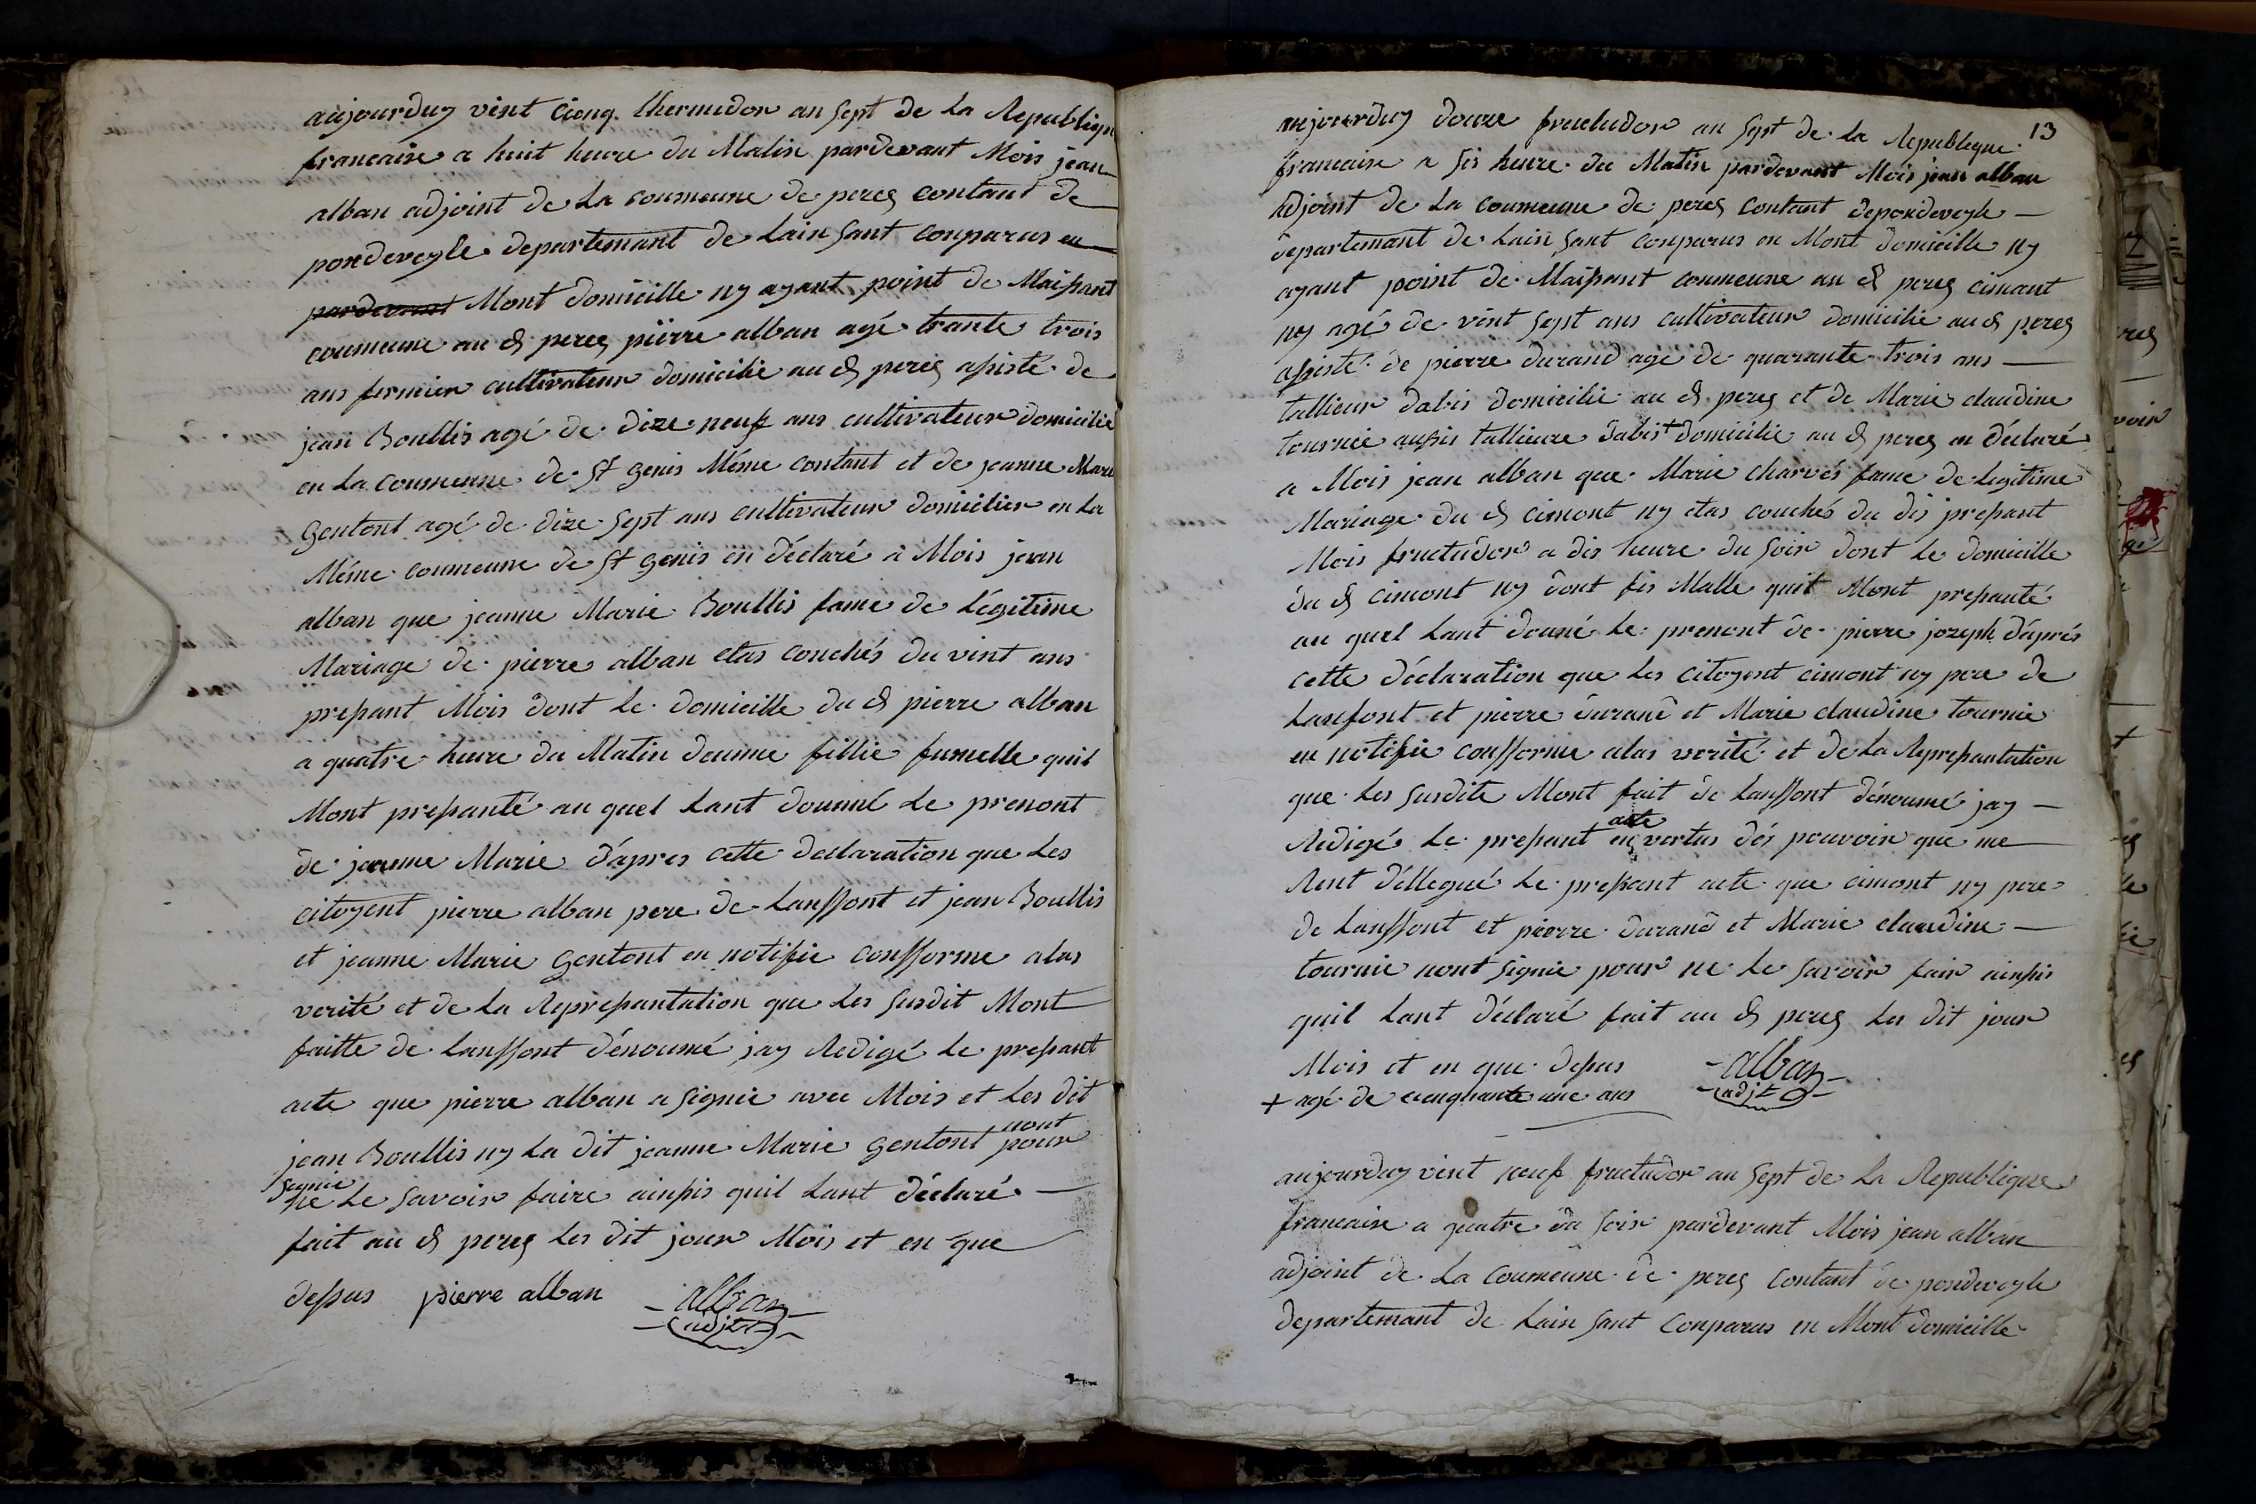 aujourduy vint cienq thermidor an sept de la Republique
francaise a huit heure du Matin pardevant Mois jean
alban adjoint de La coumeune de perez contant de
pondeveyle departemant de Lain sant comparus en
pardevant Mont domicille ny ayant point de Maissant
coumeune au d perez pierre alban agé trante trois
ans fermier cultivateur domicilié au d perez assisté de
jean Boullis agé de dize neuf ans cultivateur domicilié
en La coumeune de st genis Méme contant et de jeanne Marie
Gentont agé de dize sept ans cultivateur domicilier en La
Méme coumeune de st genis en déclaré a Mois jean
alban que jeanne Marie Boullis fame de Légitime
Mariage de pierre alban etas couchés du vint ans
pressant Mois dont Le domicille du d pierre alban
a quatre heure du Matin deunne fillie fumelle quil
Mont pressanté au quel Lant dounné Le prenont
de jeanne Marie d'apres cette declaration que Les
citoyent pierre alban pere de Lanffont et jean Boullis
et jeanne Marie Gentont en notifié confforme alas
verité et de La Repressantation que Les susdit Mont
faitte de Lanffont dénoumé jay Redigé Le pressant
acte que pierre alban a signie avec Mois et Les dit
jean Boullis ny La dit jeanne Marie Gentont nont pour
signie ne Le savoir faire ainssis quil Lant déclaré
fait au d perez Les dit jour Mois et en que
dessus pierre alban alban
adjt
13
aujourduy douze fructudor an sept de La Republeque
francaise a sis heure du Matin pardevant Mois jean alban
Adjoint de La coumeune de perez contant de pondeveyle
departemant de Lain sant comparus en Mont domicille ny
ayant point de Maissant coumeune au d perez cimont
ny agé de vint sept ans cultivateur domicilié au d perez
assisté de pierre durand agé de quarante trois ans
tallieur dabis domicilié au d perez et de Marie claudine
tournié aussis tallieure dabis + domicilié au d perez en déclaré
a Mois jean alban que Marie charvés fame de Legitime
Mariage du d cimont ny etas couchés du dis pressant
Mois fructudor a dis heure du soir dont Le domicille
du d cimont ny dont fis Malle quil Mont pressanté
au quel Lant douné Le prenont de pierre jozeph d'aprés
cette déclaration que Les citoyent cimont ny pere de
Lanfont et pierre durand et Marie claudine tournie
en notifié confforme alas verité et de La Repressantation
que Les susdite Mont fait de Lanffont dénoumé jay
Redigé Le pressant acte en vertus dés pouvoir que me
Sent déllegué Le pressant acte que cimont ny pere
de Lanffont et pierre durand et Marie claudine
tournie nont signie pour ne Le savoir fair ainssis
quil Lant déclaré fait au d perez Les dit jour
Mois et en que dessus alban
+ agé de cienquante une ans adjt
aujourduy vint neuf fructudor an sept de La Republique
francaise a quatre du soir pardevant Mois jean alban
adjoint de La coumeune de perez contant de pondeveyle
departemant de Lain sant comparus en Mont domicille